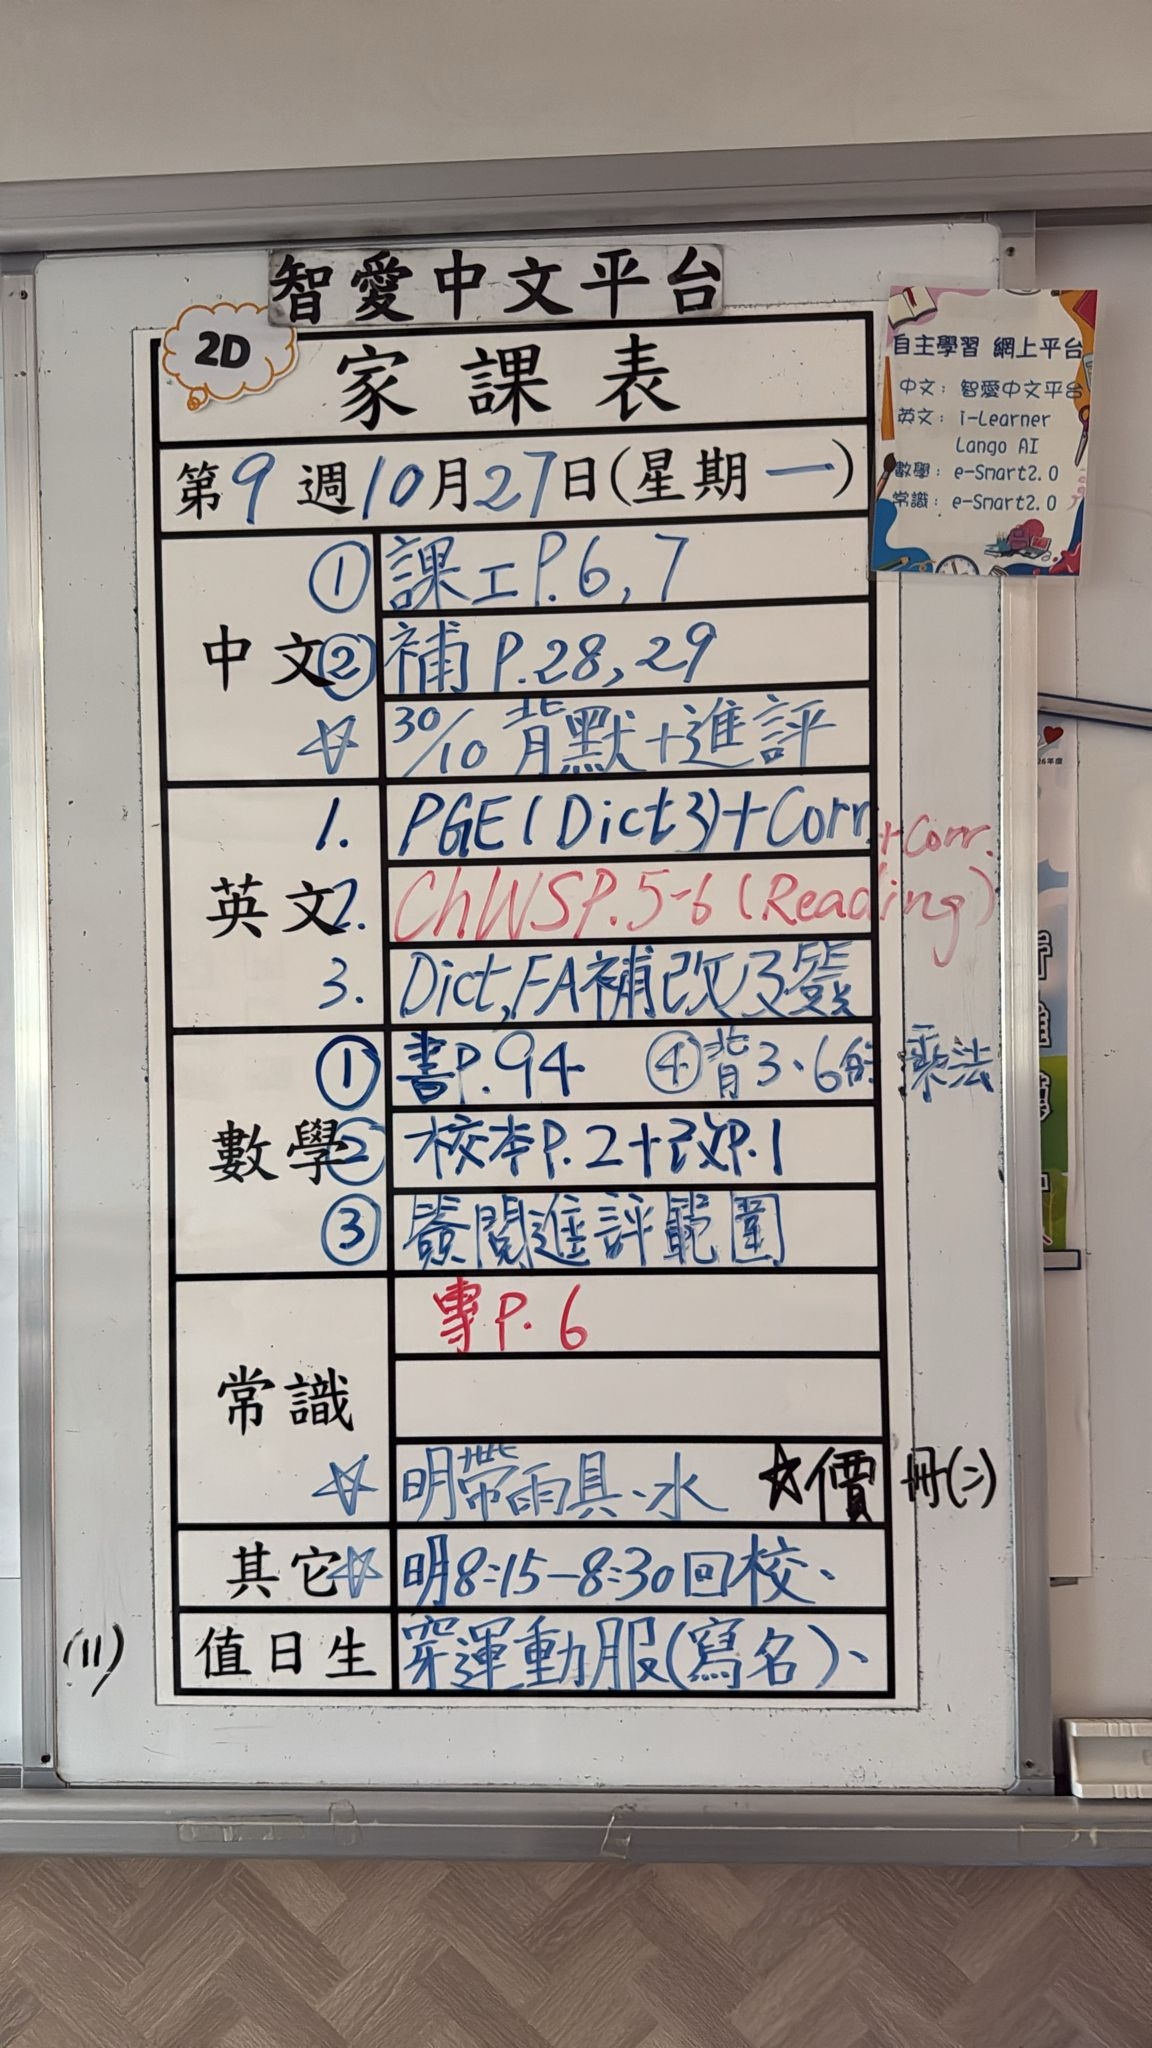 智愛中文平台
2D
家課表
第9週10月27日(星期一)
中文
① 課工P.6,7
② 補P.28,29
☆ 30/10 背默+進評
英文
1. PGE(Dict3)+Corr
+Corr.
2. ChWSP.5-6(Reading)
3. Dict,FA補改及簽
數學
① 書P.94 ④背3、6的乘法
② 校本P.2+改P.1
③ 簽閱進評範圍
常識
專P.6
☆ 明帶雨具、水 ☆價冊(二)
其它
☆ 明8:15-8:30回校、
值日生
(11)
穿運動服(寫名)、
自主學習 網上平台
中文：智愛中文平台
英文：i-Learner
Lango AI
數學：e-Smart2.0
常識：e-Smart2.0